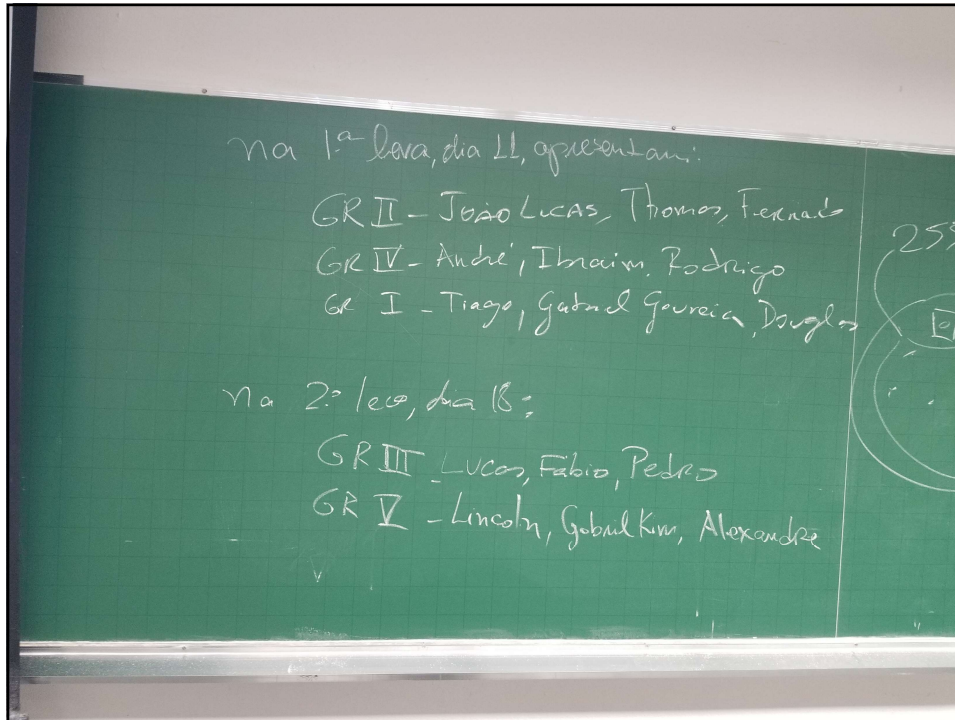 na 1ª leva, dia 11, apresentam:
GR II - João Lucas, Thomas, Fernando
GR IV - André, Ibraim, Rodrigo
GR I - Tiago, Gabriel Gouveia, Douglas
na 2ª leva, dia 18:
GR III - Lucas, Fábio, Pedro
GR V - Lincoln, Gabriel Kim, Alexandre